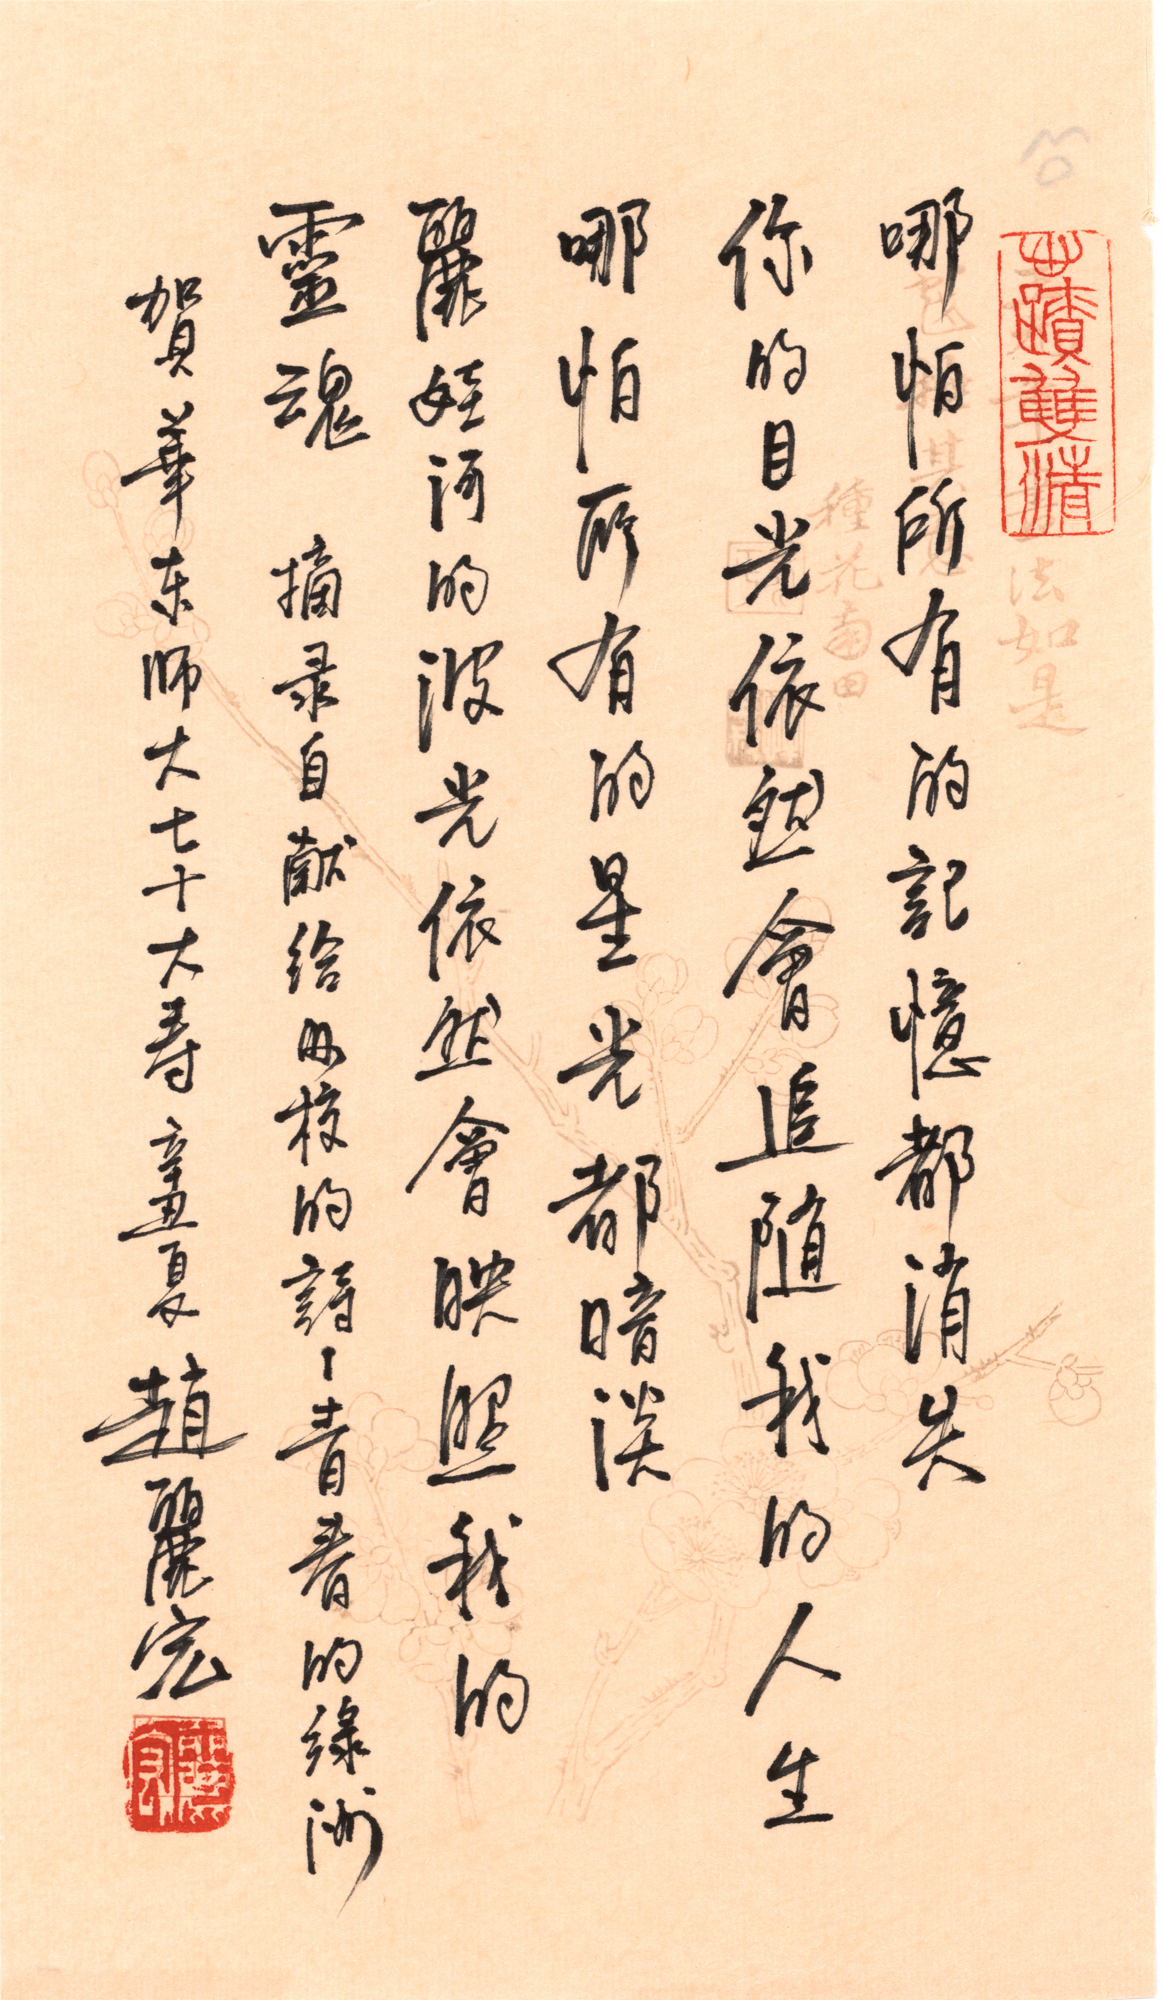 哪怕所有的記憶都消失
你的目光依然會追隨我的人生
哪怕所有的星光都暗淡
麗娃河的波光依然會映照我的
靈魂 摘录自献给母校的詩「青春的綠洲
賀華东师大七十大寿辛丑夏 趙麗宏
法如是
種花南田